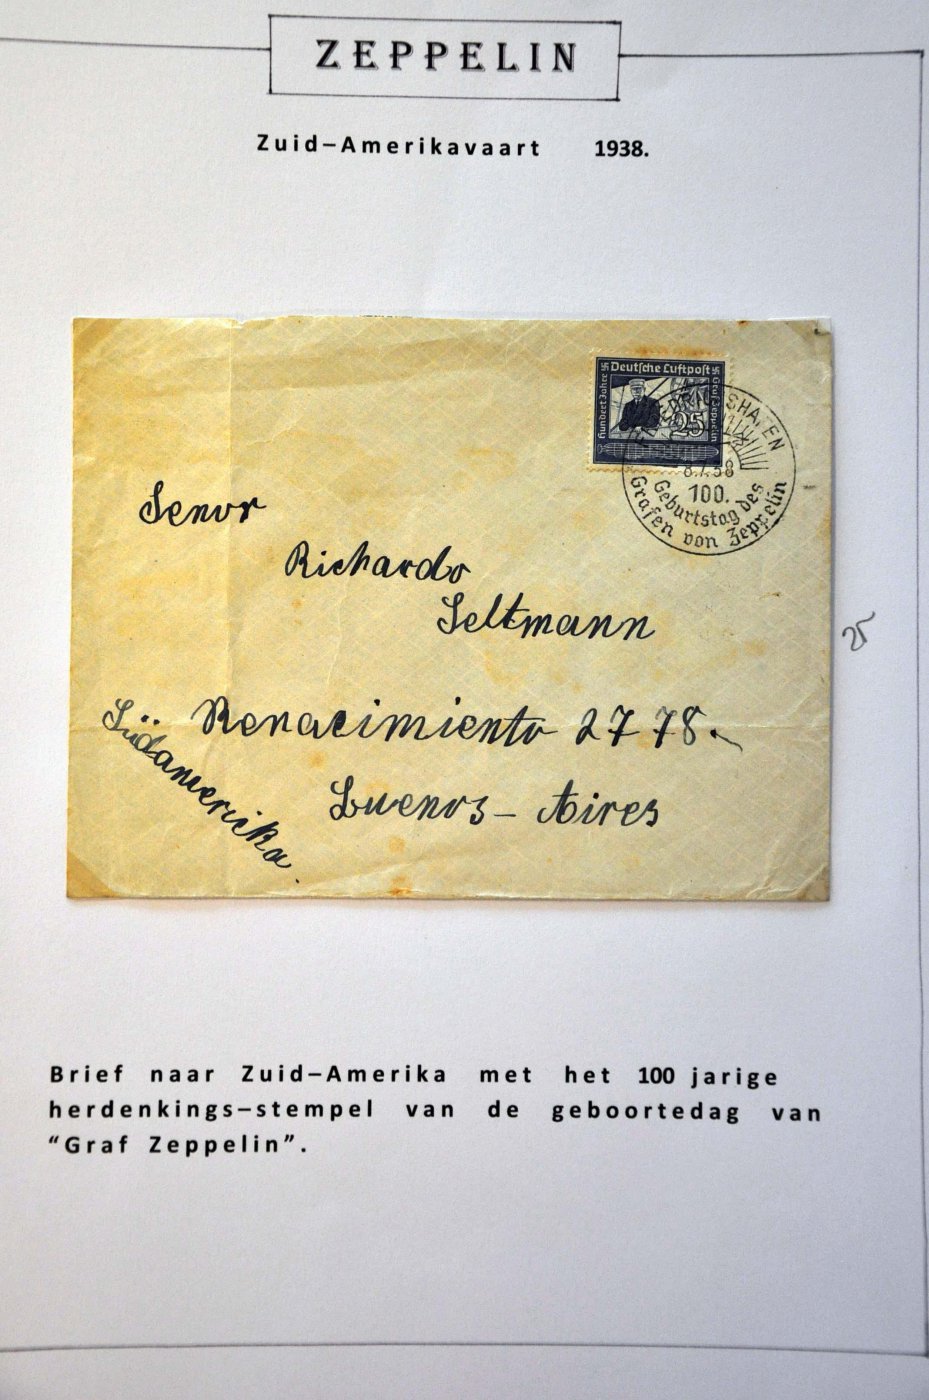 ZEPPELIN
Zuid-Amerikavaart 1938.
Deutsche Luftpost
Hundert Jahre
Graf Zeppelin
25
FRIEDRICHSHAFEN
8.7.38
100.
Geburtstag des
Grafen von Zeppelin
Senor
Richardo
Seltmann
25
Renacimiento 2778.
Südamerika.
Buenos-Aires
Brief naar Zuid-Amerika met het 100 jarige
herdenkings-stempel van de geboortedag van
“Graf Zeppelin”.